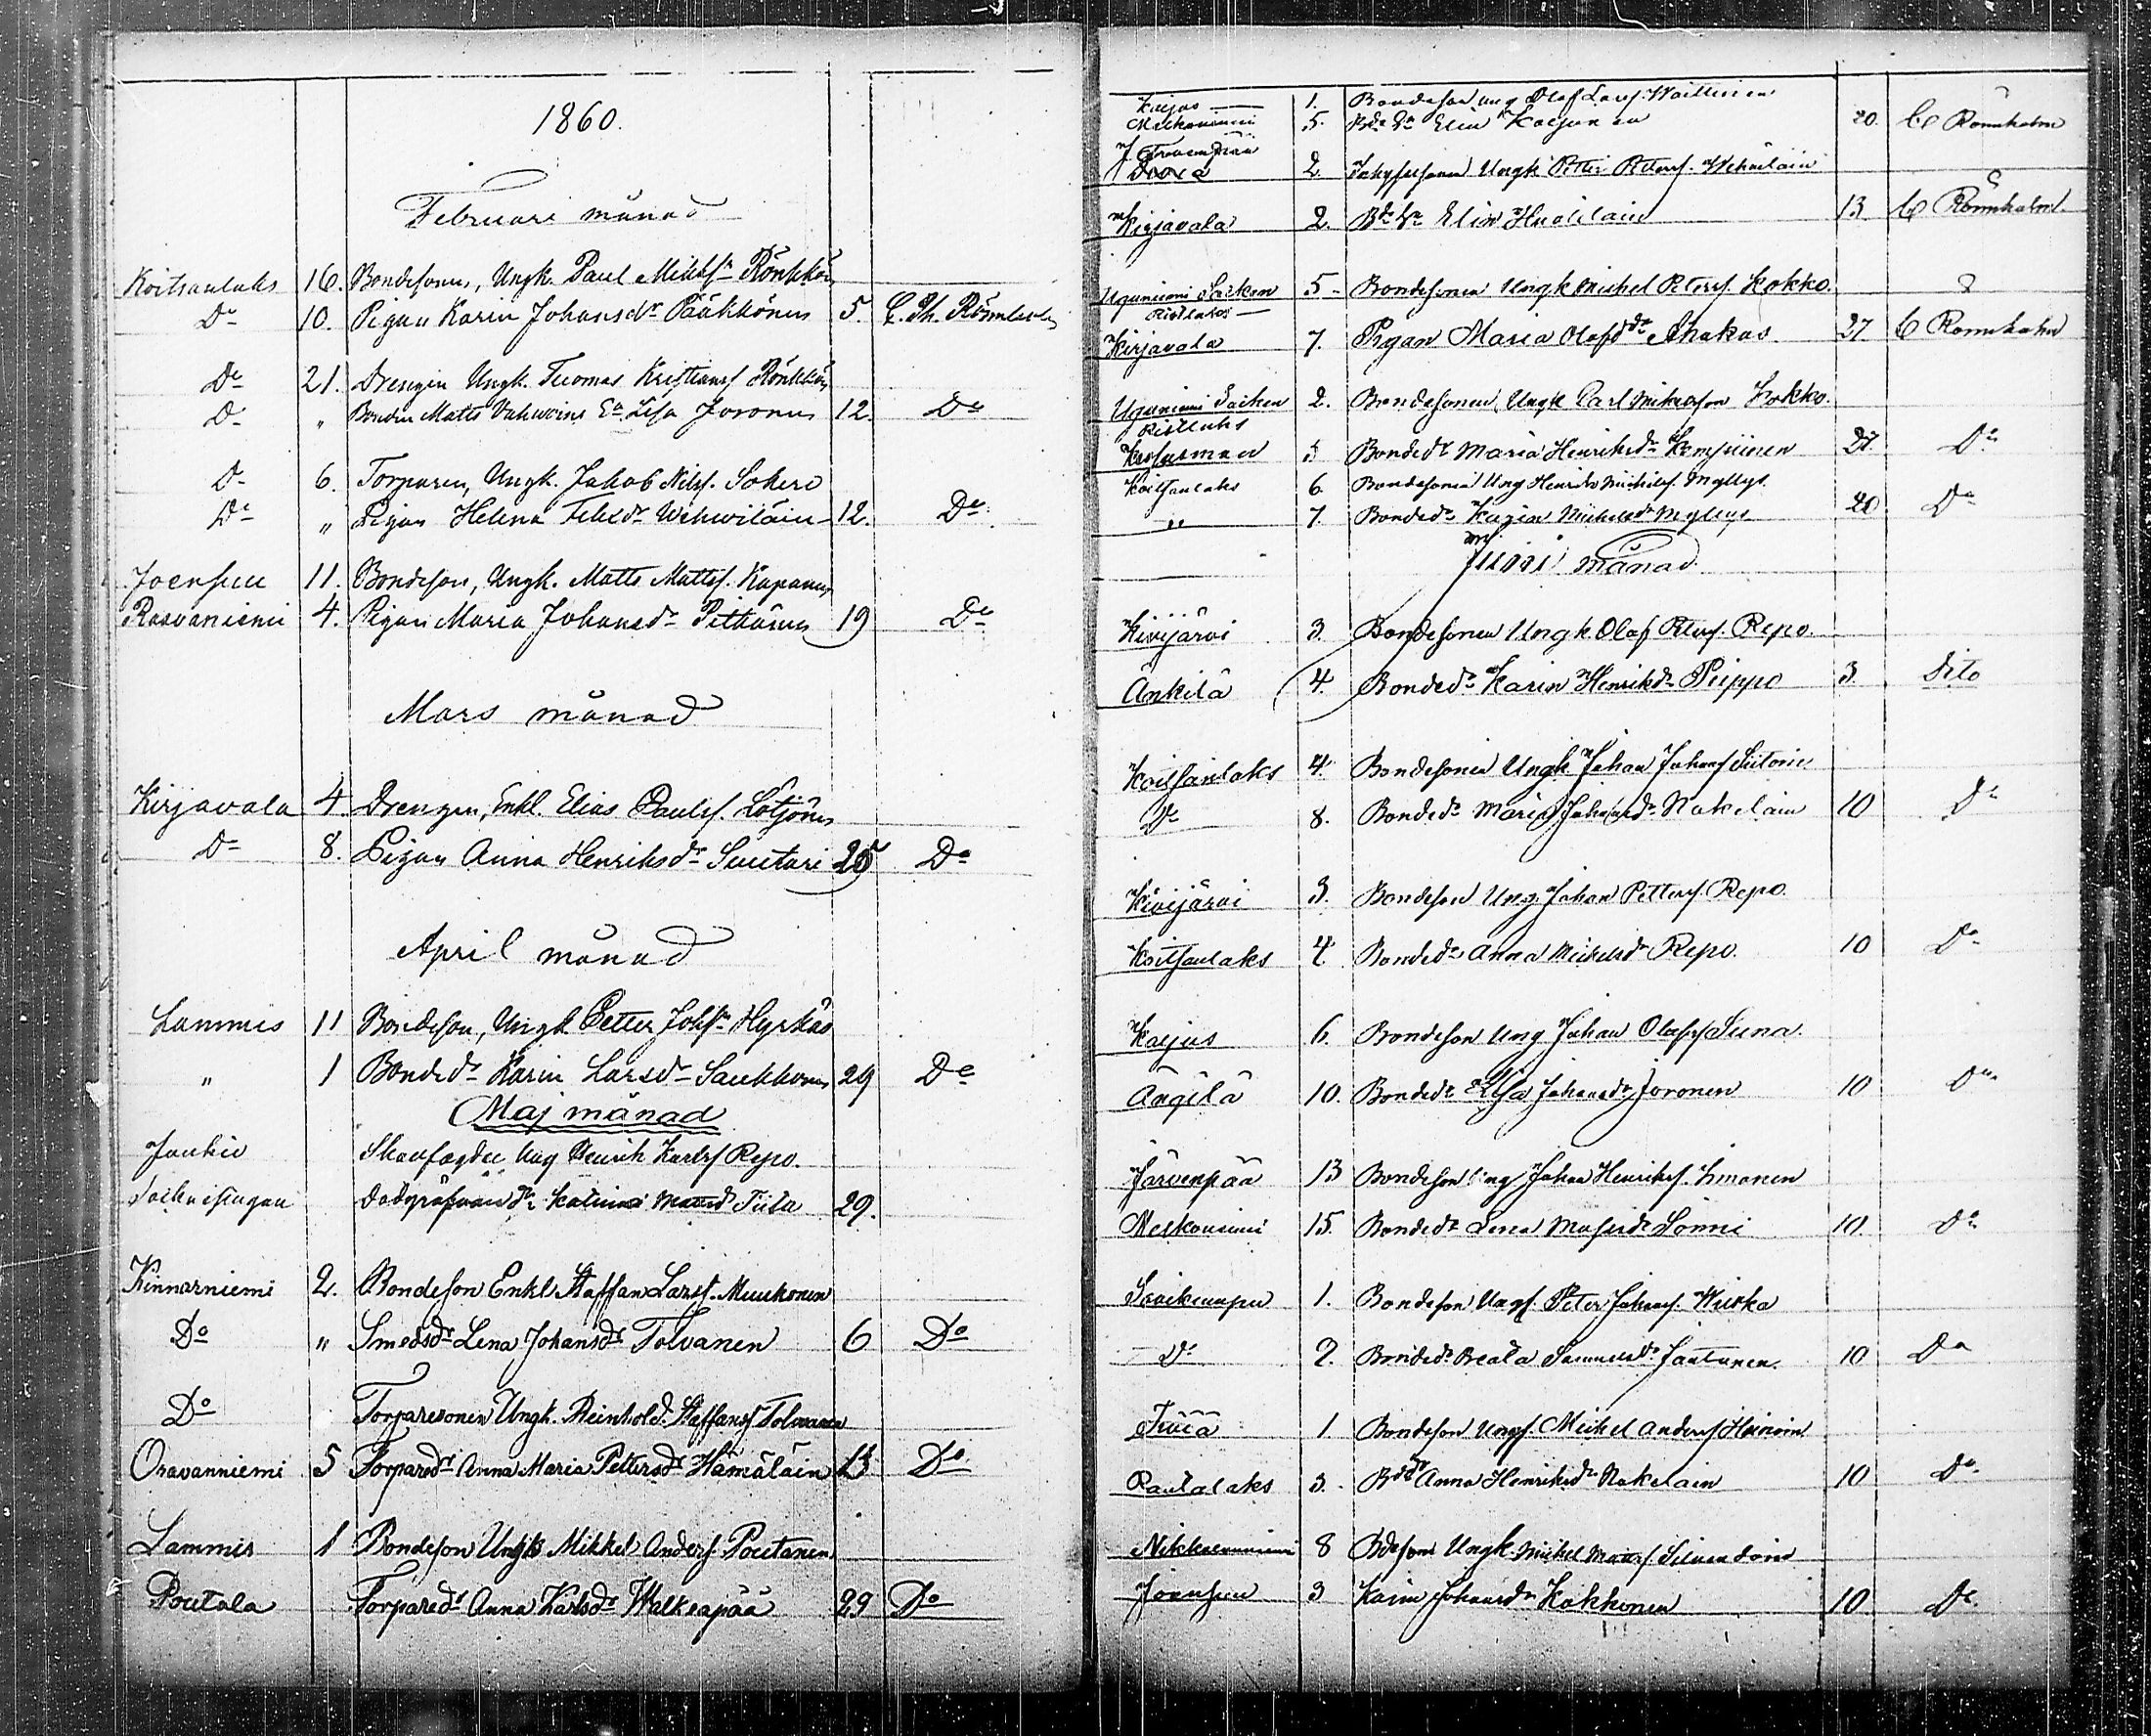 1860.
Februari månad
Koitsanlaks 16. Bondesonen, Ungk. Paul Mikkelsn Rönkkön
Do 10. Pigan Karin Johansdr Pääkkönen 5. C. Th. Rönnholm
Do 21. Drengen Ungk. Tuomas Kristiansf Rönkkön
Do " Bonden Matts Vahwains Ea Lisa Joronen 12. Do
Do 6. Torparen, Ungk. Jakob Nilsf. Sokero
Do " Pigan Helena Felixdr Wehwiläin 12. Do
Joensuu 11. Bondeson, Ungk. Matts Mattsf. Kapanen
Rasvaniemi 4. Pigan Maria Johansdr Pitkänen 19 Do
Mars månad
Kirjavala 4. Drengen, Enkl. Elias Paulsf. Lötjönen
Do 8. Pigan Anna Henriksdr Suutari 25 Do
April månad
Lammis 11 Bondeson, Ungk. Petter Johsn Hyrkäs
" 1 Bondedr Karin Larsdr Saukkonen 29 Do
Maj månad
Jankio Ung Henrik Karlsf Repo.
Katrina Tiila 29.
Kinnarniemi 2. Bondeson Enkl Staffan Larsf. Muukonen
Do " Smedsdr Lena Johansdr Tolvanen 6 Do
Do Torparesonen Ungk. Reinhold Staffansf Tolvanen
Oravanniemi 5 Torparedr Anna Maria Pettersdr Hämäläin 13 Do
Lammis 1 Bondeson Ungk Mikkel Andersf Poutanen
Poutala Torparedr Anna Karlsdr Walkeapää 29 Do
Kaijus 1. Bondeson Ung Olof Larsf. Woittinen
5. Elin Kaijunen 20. C Rönnholm
2. Ungk Petter Pettersf. Wehviläin
Kirjavala 2. Bde dr Elin Huolilain 13 C Rönnholm
Uguniemi Socken Ristlaks 5 Bondesonen Ungk Michel Petersf. Kokko.
Kirjavala 7. Pigan Maria Olofsdr Ahokas 27 C Rönnholm
Uguniemi Socken Ristlaks 2. Bondesonen Ungk Carl Mikaelson Kokko.
3 Bondedr Maria Henriksdr Kemppinen 27. Do
Koitsanlaks 6. Bondesonen Ung Henrik Michelsf. Myllys
" 7. Bondedr Karin Michelsdr Myllys 20 Do
Juni månad
Kivijärvi 3. Bondesonen Ungk. Olof Pettersf. Repo.
Änkilä 4. Bondedr Karin Henriksdr Peippo 3. Dito
Koitsanlaks 4. Bondesonen Ungk Johan Johansf Siitoin
Do 8. Bondedr Maria Johansdr Nokelain 10 Do
Kivijärvi 3. Bondeson Ung. Johan Pettersf. Repo.
Koitsanlaks 4. Bondedr Anna Michelsdr Repo. 10 Do
Kaijus 6. Bondeson Ung Johan Olofsf Suna.
Ängilä 10. Bondedr Lisa Johansdr Joronen 10 Do
Järvenpää 13 Bondeson Ung Johan Henriksf. Simonen
Meskoniemi 15. Bondedr Lena Matsdr Sonni 10. Do
1. Bondeson Ungk. Peter Johansf.
Do 2. Bondedr Beata Samuelsdr Jantunen. 10 Do
1 Bondeson Ungk. Michel Andersf Heinoin
Rautalaks 3. Bdedr Anna Henriksdr Nokelain 10 Do
8 Bdeson Ungk. Michel Matsf. Silvendoin
Joensuu 3 Karin Johansdr Kokkonen 10 Do